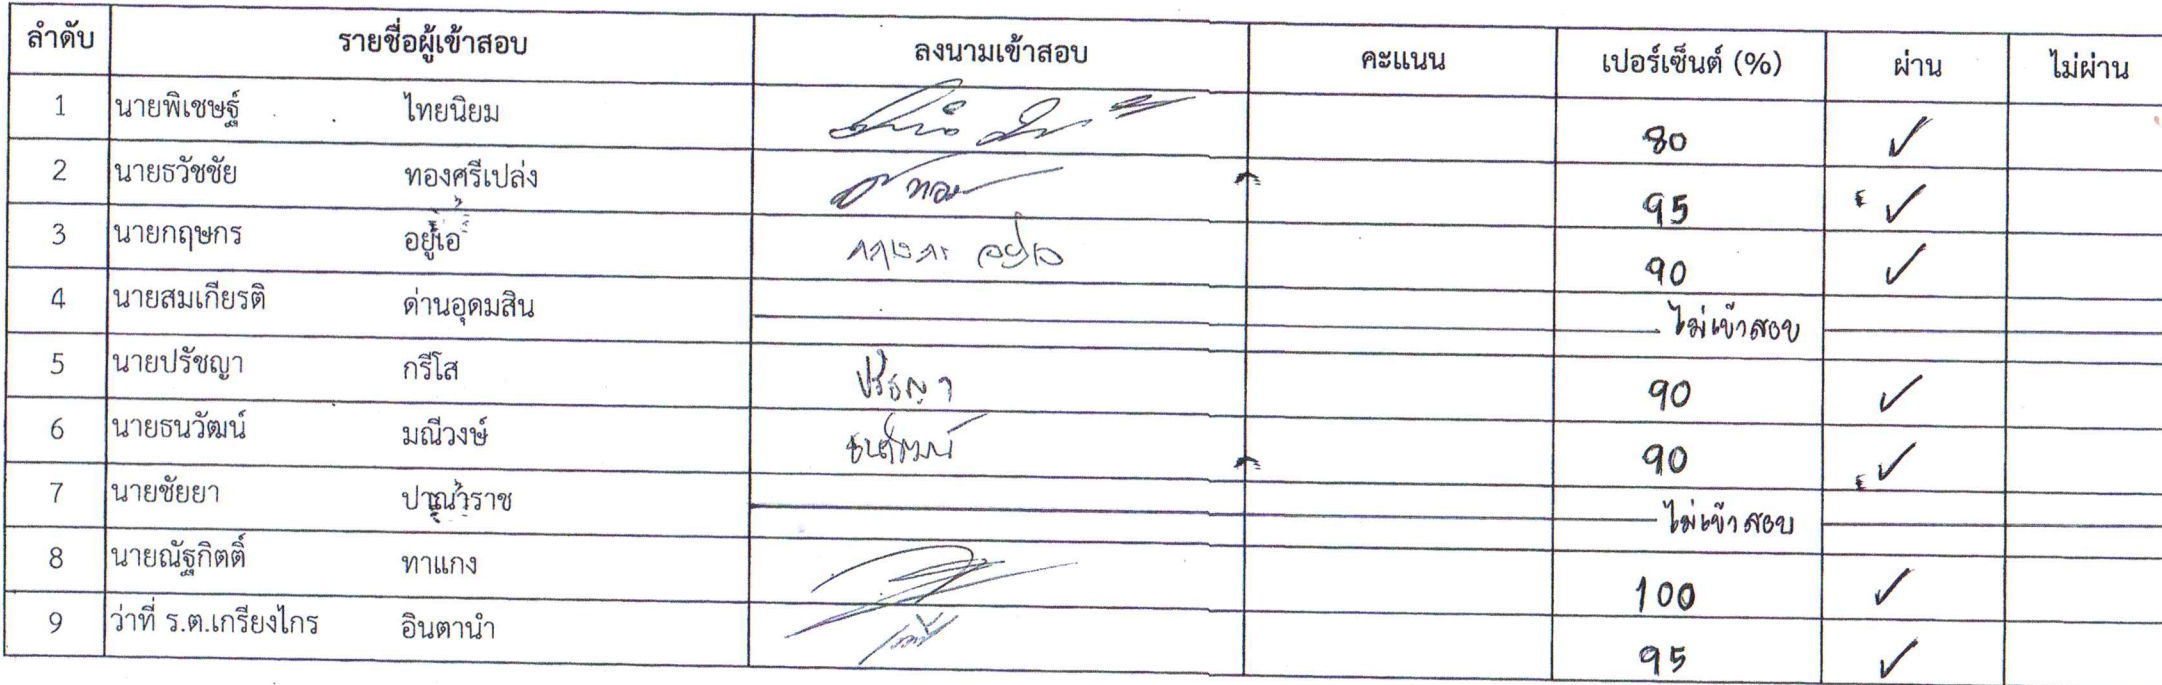 ลำดับ รายชื่อผู้เข้าสอบ ลงนามเข้าสอบ คะแนน เปอร์เซ็นต์ (%) ผ่าน ไม่ผ่าน
1 นายพิเชษฐ์ ไทยนิยม 80 ✓
2 นายธวัชชัย ทองศรีเปล่ง ธ ทอง 95 ✓
3 นายกฤษกร อยู่เอ้ กฤษกร อยู่เอ้ 90 ✓
4 นายสมเกียรติ ด่านอุดมสิน ไม่เข้าสอบ
5 นายปรัชญา กรีโส ปรัชญา 90 ✓
6 นายธนวัฒน์ มณีวงษ์ ธนวัฒน์ 90 ✓
7 นายชัยยา ปาณวราช ไม่เข้าสอบ
8 นายณัฐกิตติ์ ทาแกง 100 ✓
9 ว่าที่ ร.ต.เกรียงไกร อินตานำ 95 ✓